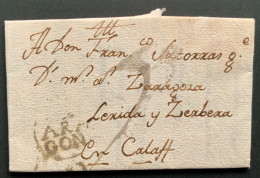 A Don Fran.co Satorras g.e
D.s m.s a.s Zaragoza
Lerida y Zerbera
En Calaff
AR
GON